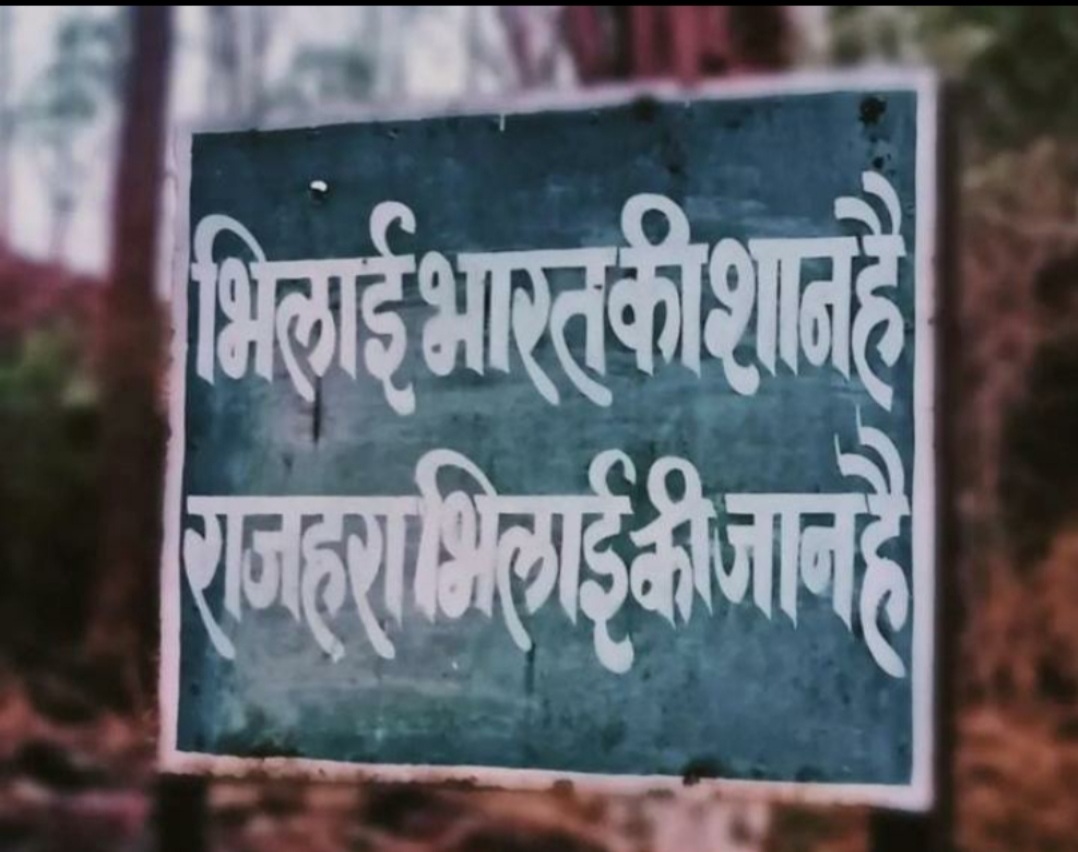 भिलाई भारत की शान है
राजहरा भिलाई की जान है